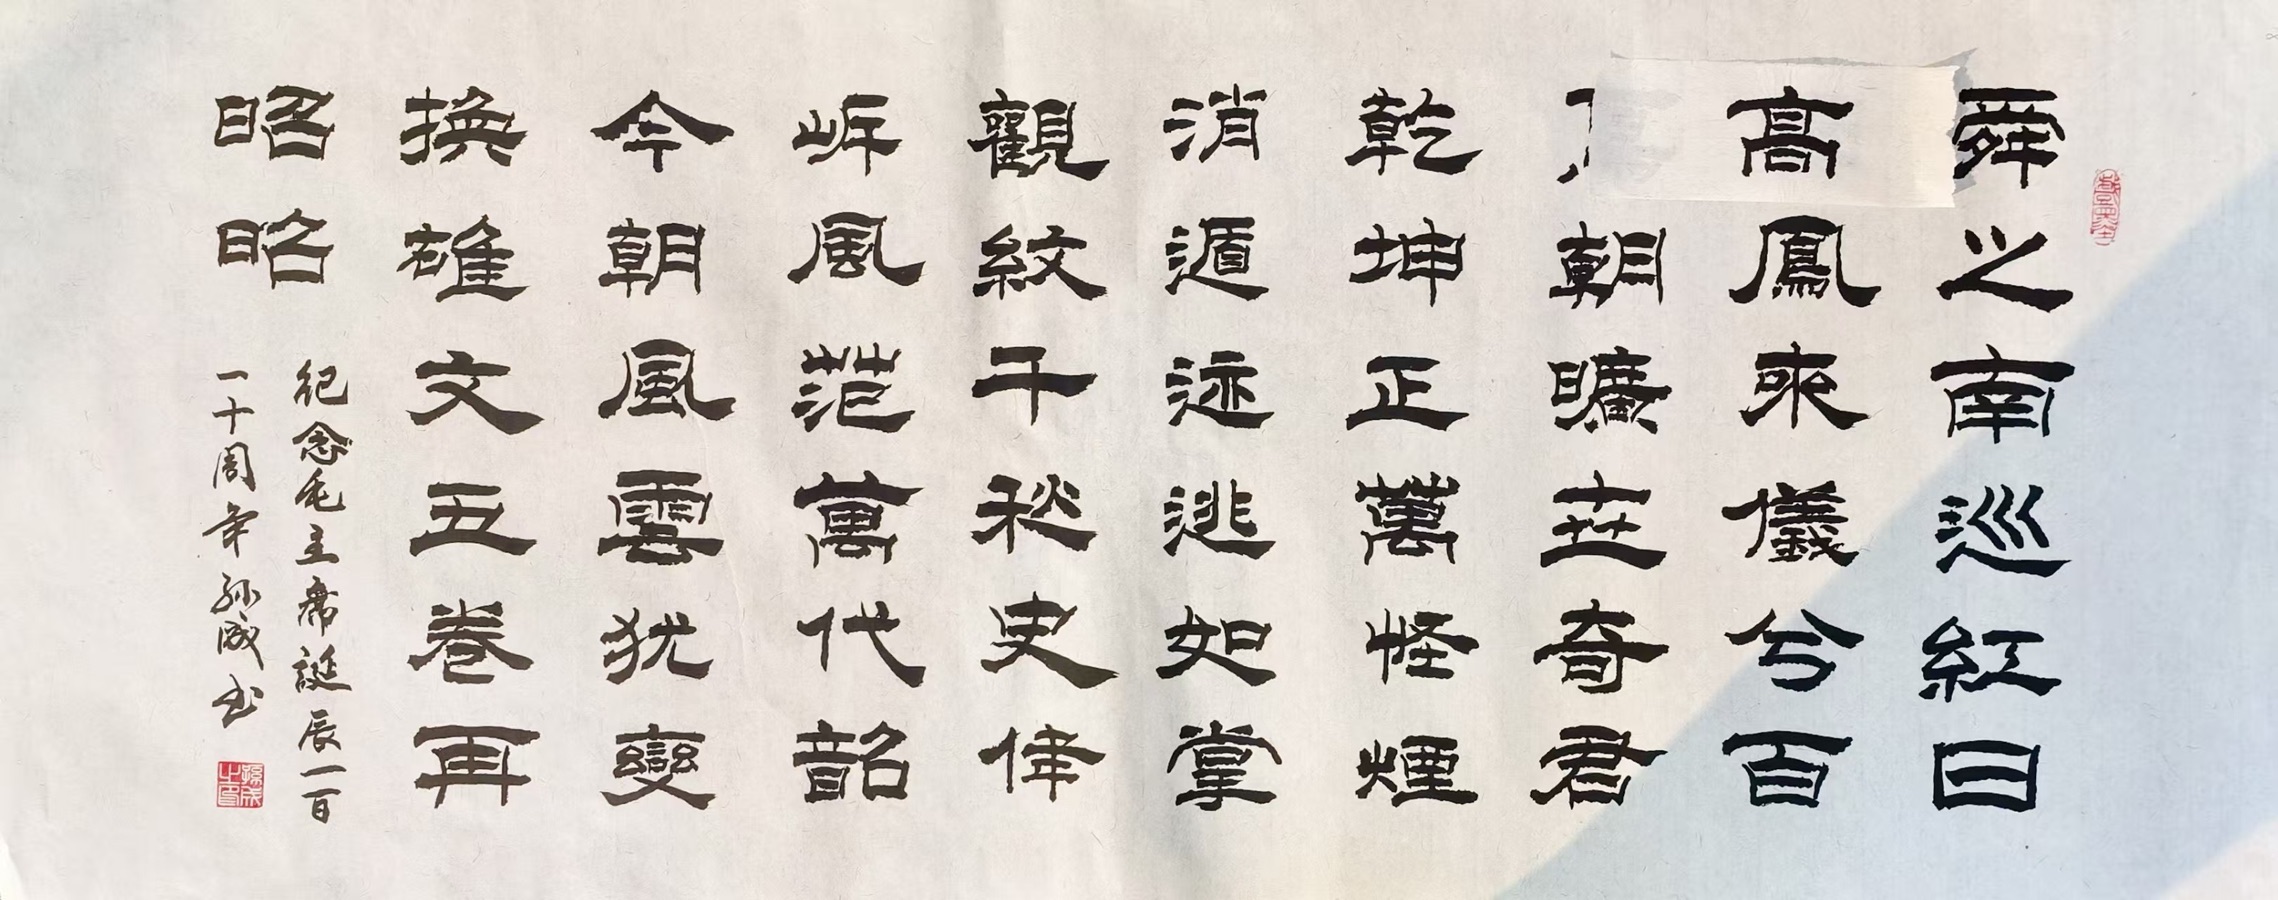 舜之南巡紅日
高鳳來儀兮百
朝曠世奇君
乾坤正萬怪煙
消遁迹逃如掌
觀紋千秋史偉
岸風范萬代韶
今朝風雲猶變
換雄文五卷再
昭昭
紀念毛主席誕辰一百
一十周年孫成书
孫成之印